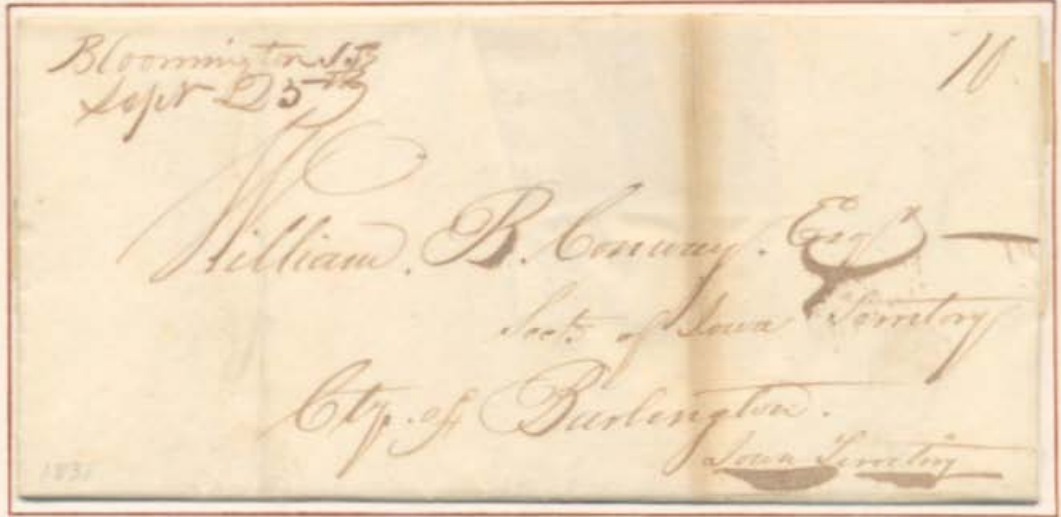 Bloomington I.T.
Sept 25th
10.
William. B. Conway. Esqr
Secty of Iowa Territory
City. of Burlington.
Iowa Territory